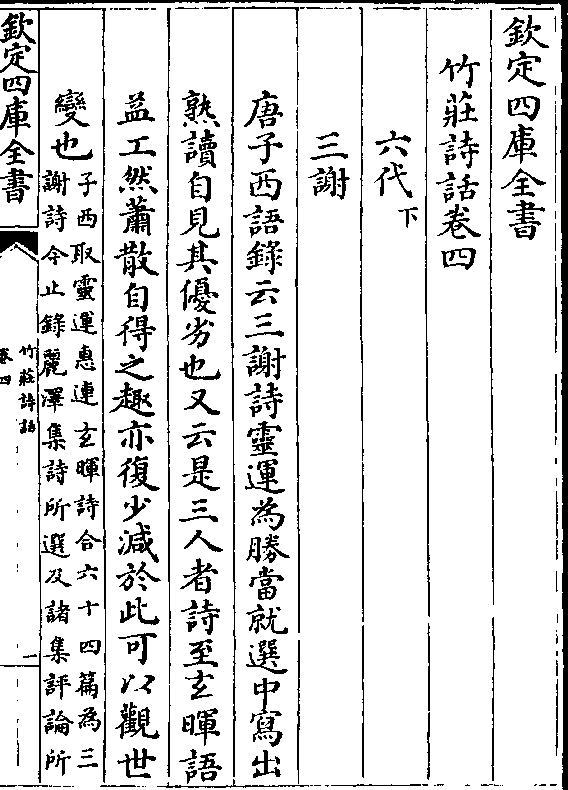 欽定四庫全書
竹莊詩話卷四
六代下
三謝
唐子西語錄云三謝詩靈運為勝當就選中寫出
熟讀自見其優劣也又云是三人者詩至玄暉語
益工然蕭散自得之趣亦復少減於此可以觀世
變也子西取靈運惠連玄暉詩合六十四篇為三
謝詩今止錄麗澤集詩所選及諸集評論所
欽定四庫全書
竹莊詩話
卷四
一